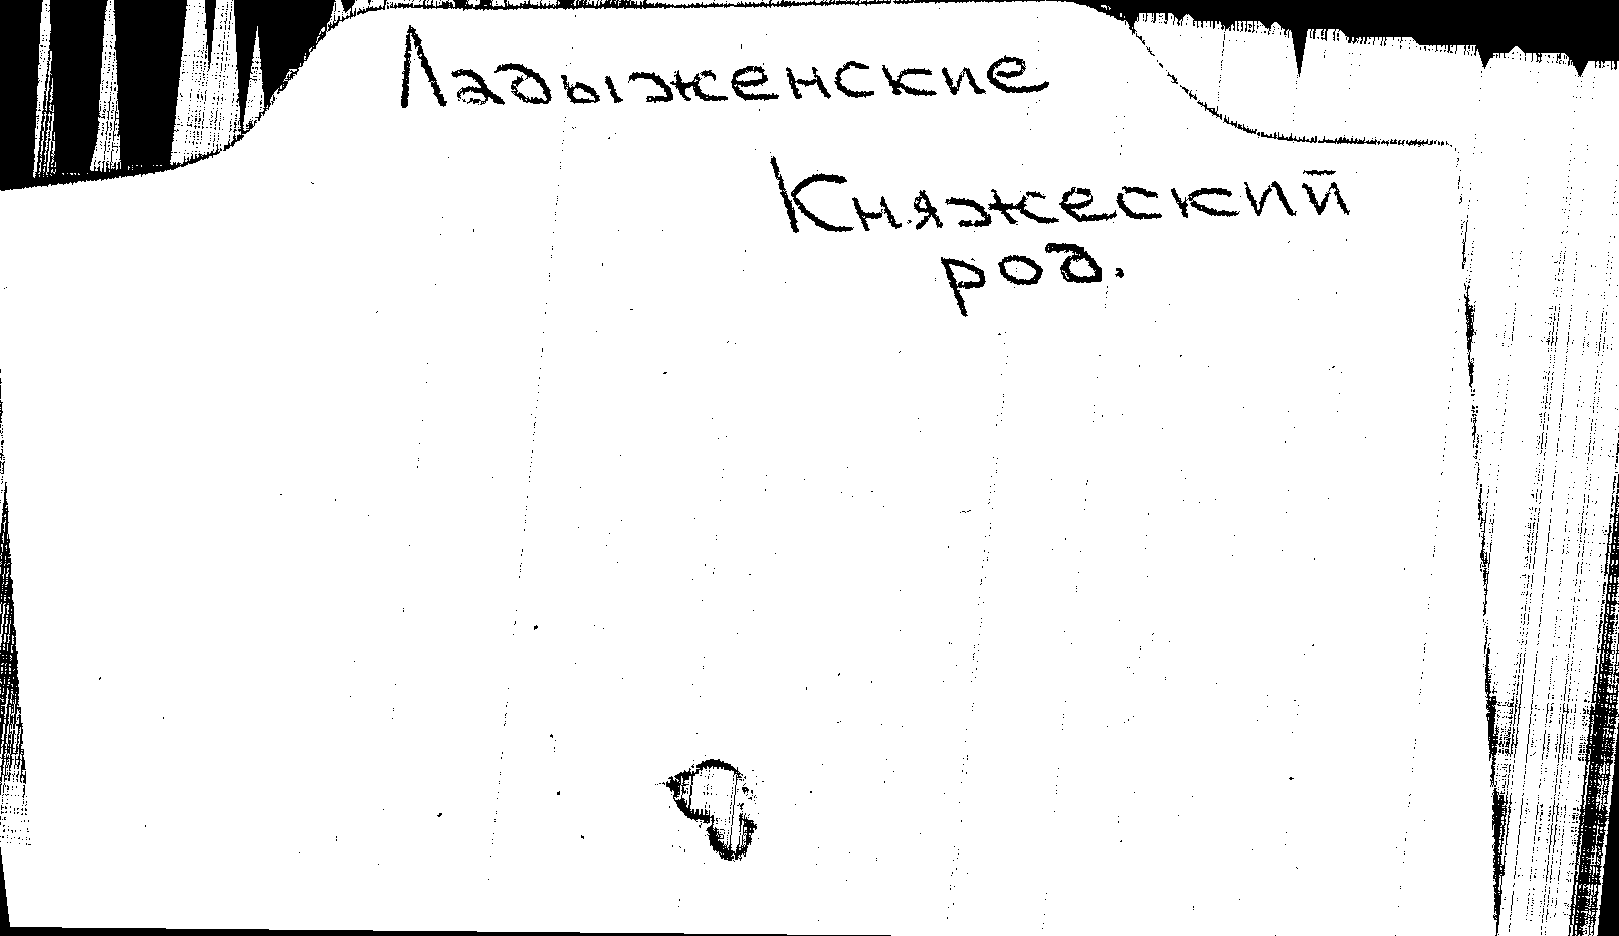 Ладыженские
Княжеский
род.